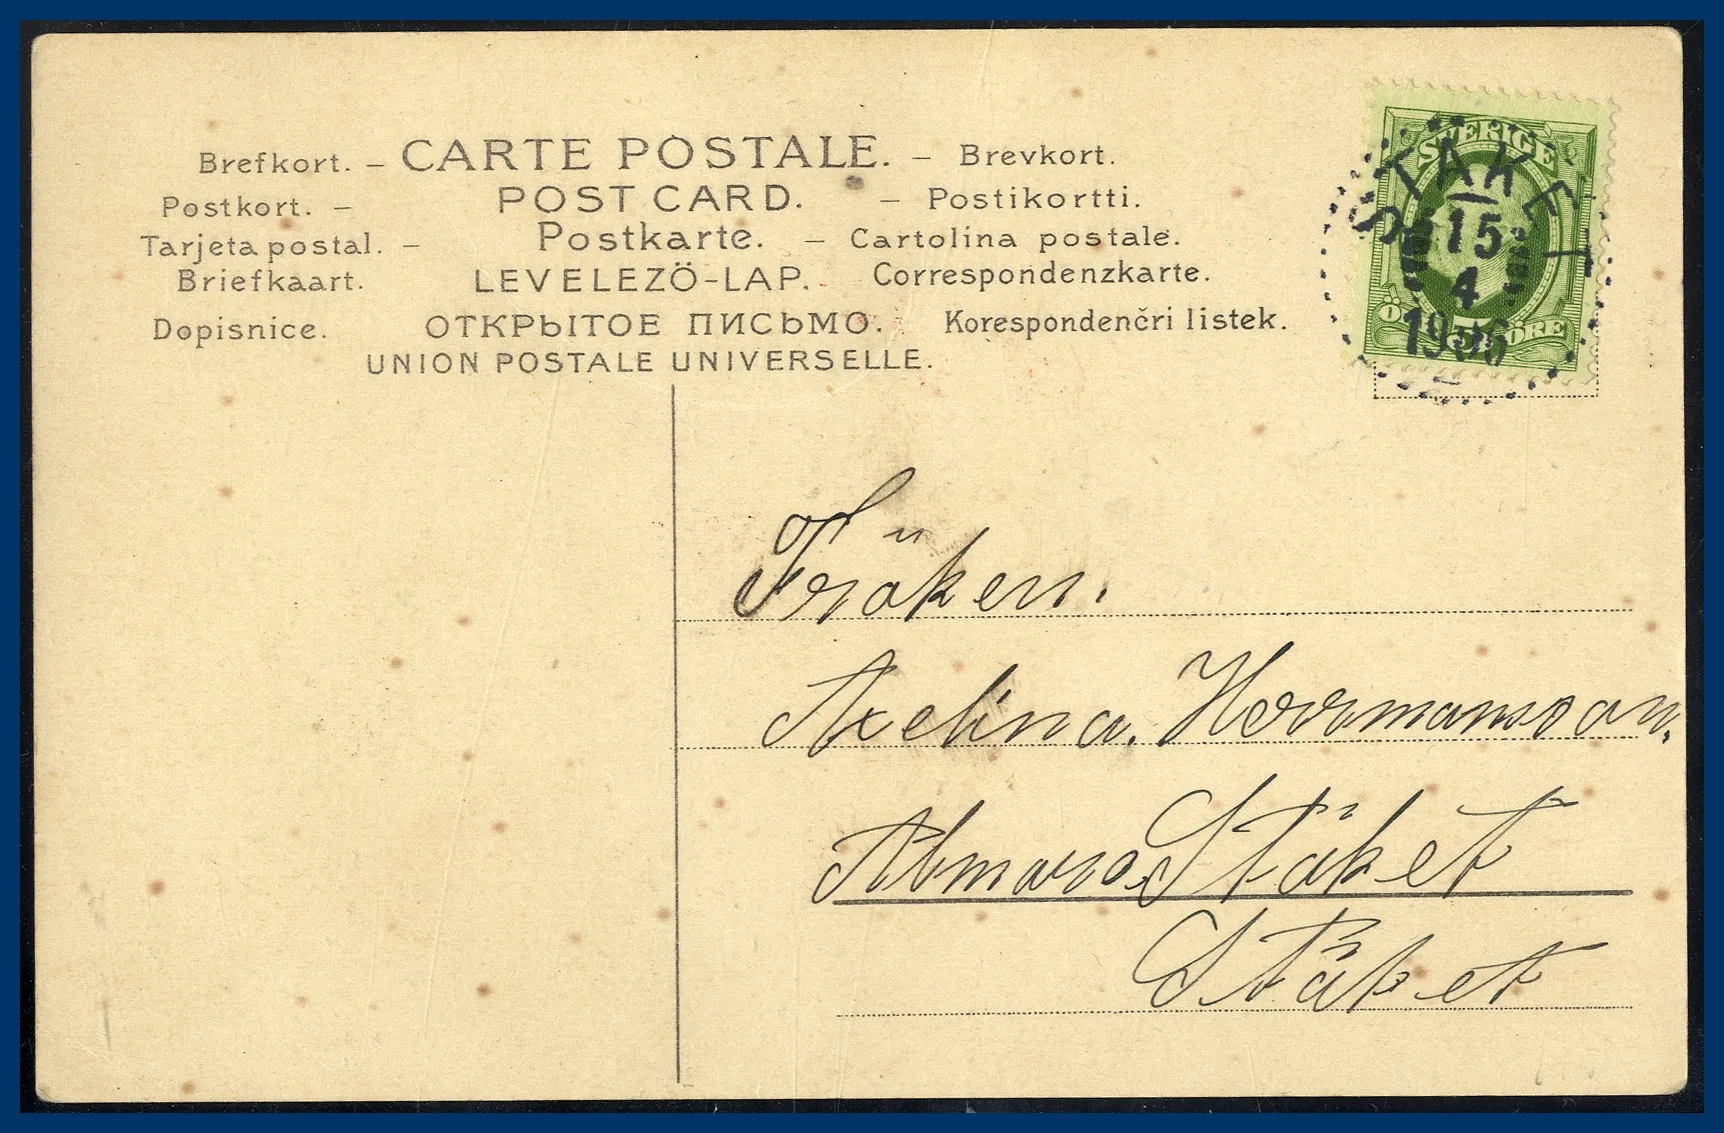 Brefkort. – CARTE POSTALE. – Brevkort.
Postkort. – POST CARD. – Postikortti.
Tarjeta postal. – Postkarte. – Cartolina postale.
Briefkaart. LEVELEZÖ-LAP. Correspondenzkarte.
Dopisnice. ОТКРЫТОЕ ПИСЬМО. Korespondenčri listek.
UNION POSTALE UNIVERSELLE.
SVERIGE
STÄKET
15
4
1906
5 ÖRE
Fröken.
Axelina. Herrmansson.
Almare Stäket
Stäket